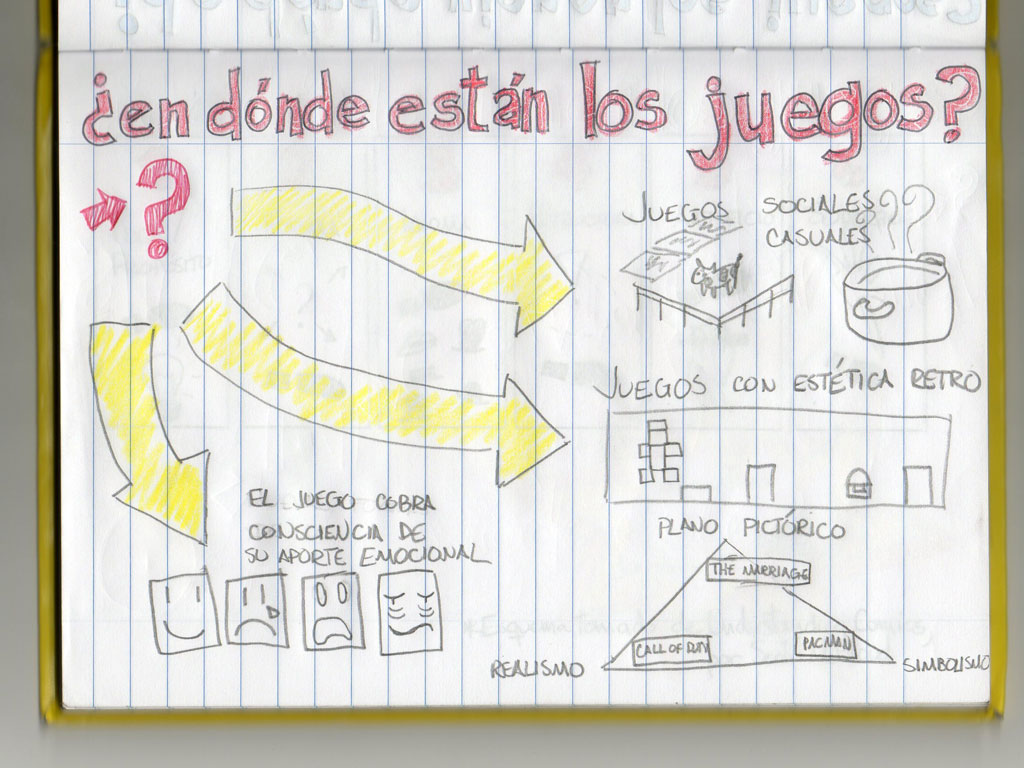 ¿en dónde están los juegos?
?
JUEGOS SOCIALES
CASUALES
JUEGOS CON ESTÉTICA RETRO
EL JUEGO COBRA
CONSCIENCIA DE
SU APORTE EMOCIONAL
PLANO PICTÓRICO
THE MARRIAGE
CALL OF DUTY
PACMAN
REALISMO
SIMBOLISMO